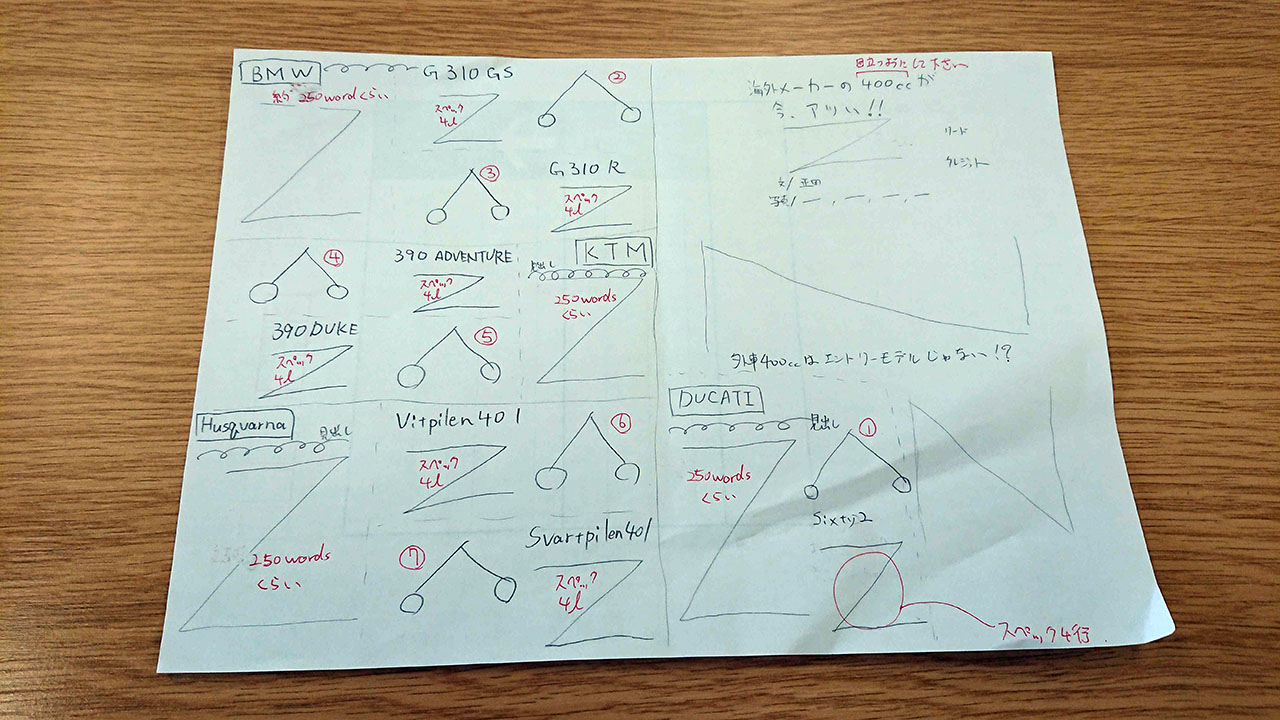 目立つようにして下さい
海外メーカーの400ccが
今、アツい!!
リード
クレジット
文/
写真/
外車400ccはエントリーモデルじゃない!?
DUCATI
見出し
①
250words
くらい
Sixty2
スペック4行
BMW
G310GS
②
約250wordくらい
スペック
4l
③
G310R
スペック
4l
④
390 ADVENTURE
スペック
4l
KTM
見出し
250words
くらい
390DUKE
スペック
4l
⑤
Husquarna
見出し
250words
くらい
Vitpilen401
スペック
4l
⑥
⑦
Svartpilen401
スペック
4l